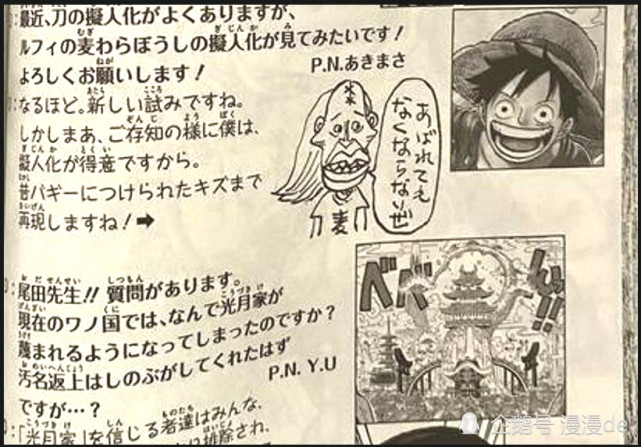 最近、刀の擬人化がよくありますが、
ルフィの麦わらぼうしの擬人化が見てみたいです！
よろしくお願いします！
P.N.あきまさ
なるほど。新しい試みですね。
しかしまあ、ご存知の様に僕は、
擬人化が得意ですから。
昔バギーにつけられたキズまで
再現しますね！➡
あばれても
なくならないぜ
麦
尾田先生!! 質問があります。
現在のワノ国では、なんで光月家が
蔑まれるようになってしまったのですか？
汚名返上はしのぶがしてくれたはず
ですが…？
P.N. Y.U
べべん!!
「光月家」を信じる者達はみんな、
に排除され、
企鹅号 漫漫de